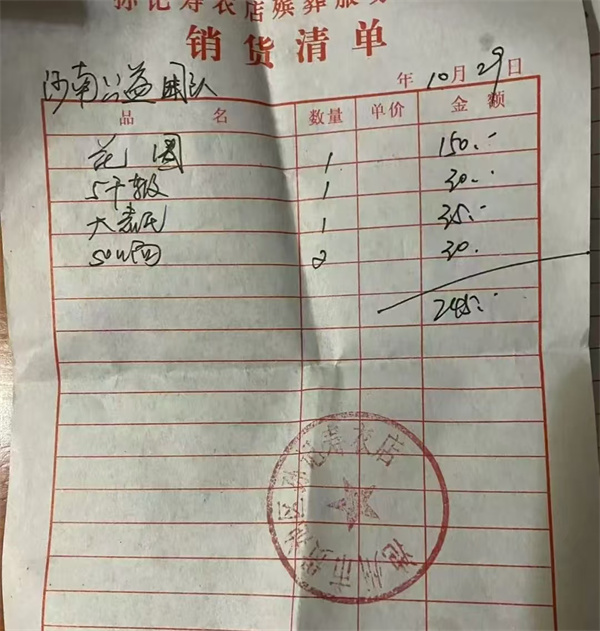 孙记寿衣店殡葬服务
销货清单
河南公益团队 年10月29日
品名 数量 单价 金额
花圈 1 150.-
5千 1 30.-
大 1 35.-
50 2 30.
245.-
沧州市 孙记寿衣店